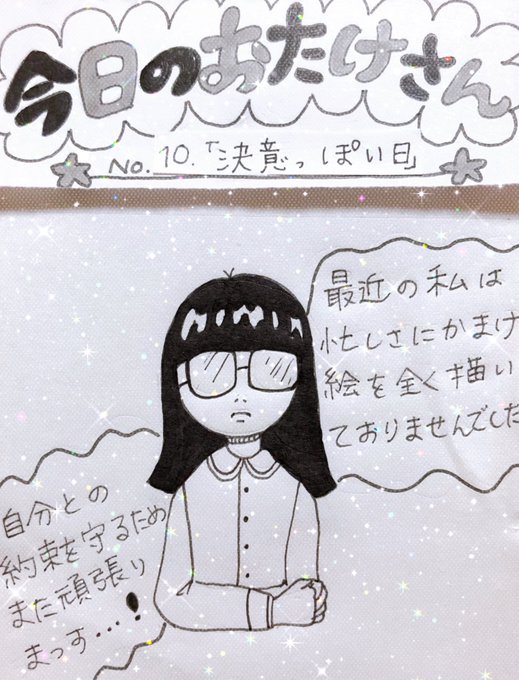 今日のおたけさん
No.10.「決意っぽい日」
最近の私は
忙しさにかまけ
絵を全く描い
ておりませんでした
自分との
約束を守るため
また頑張り
まっす…!